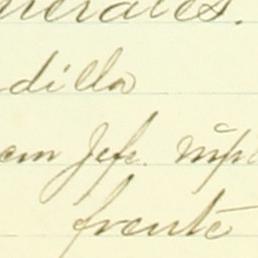 nerales.
dilla
em Jefe.
frente